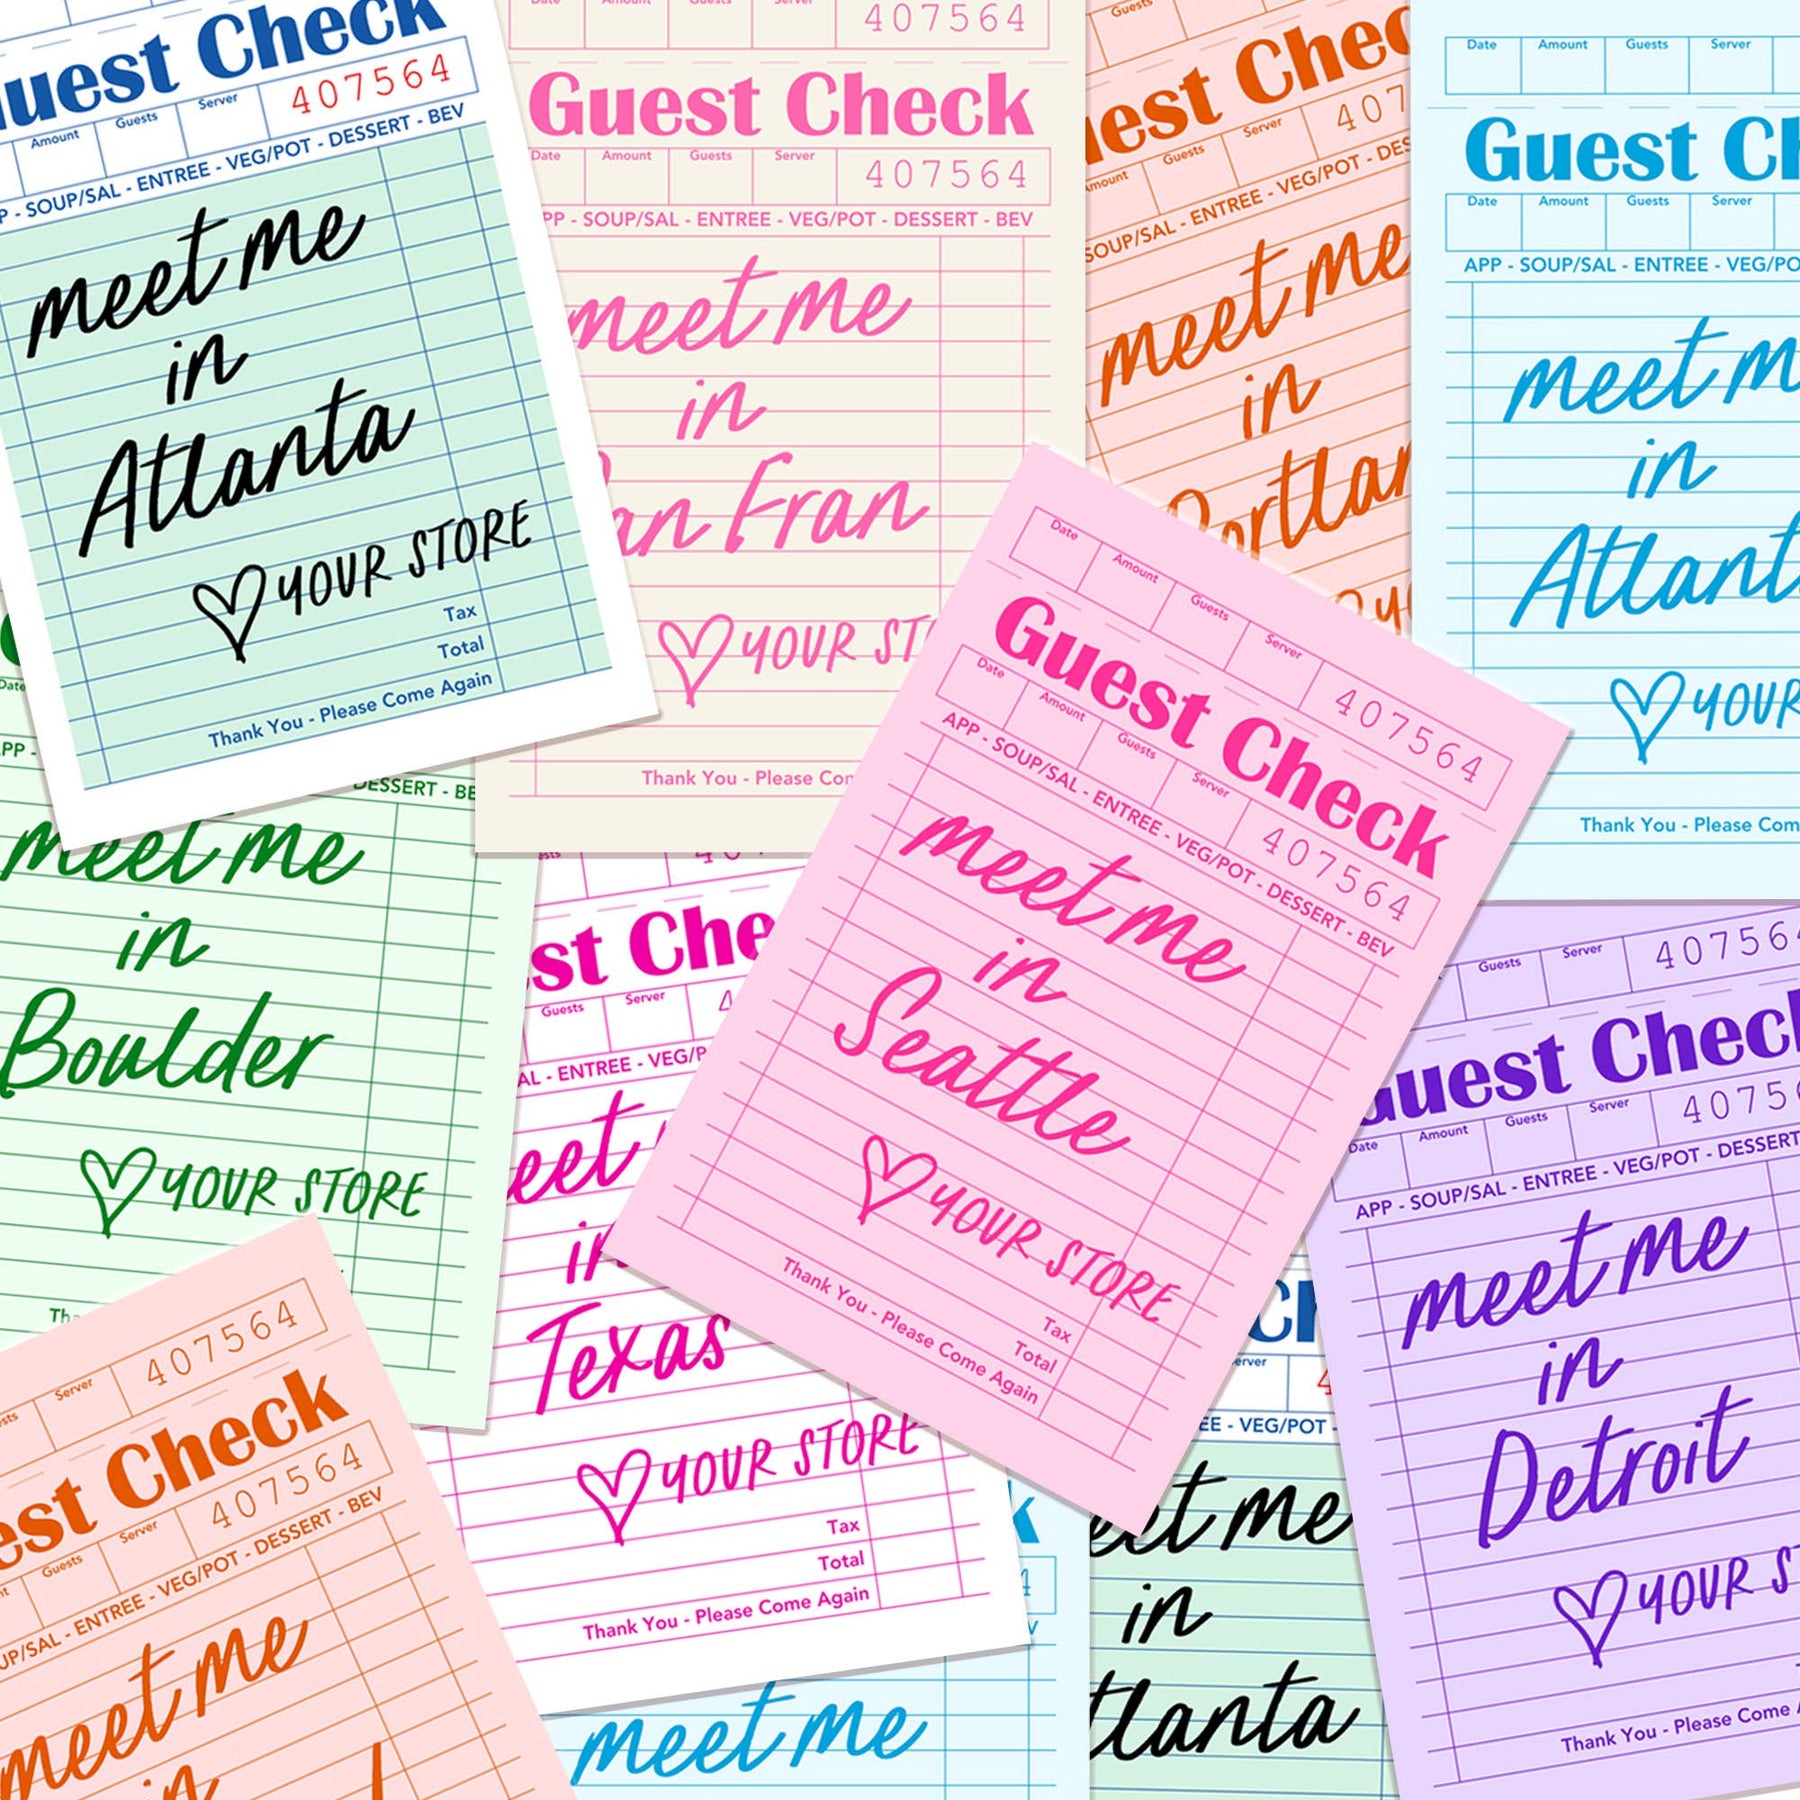 Guest Check
Amount Guests Server 407564
SOUP/SAL - ENTREE - VEG/POT - DESSERT - BEV
meet me
in
Atlanta
♡ YOUR STORE
Tax
Total
Thank You - Please Come Again
Date Amount Guests Server 407564
Guest Check
Date Amount Guests Server 407564
APP - SOUP/SAL - ENTREE - VEG/POT - DESSERT - BEV
meet me
in
San Fran
♡ YOUR ST
Thank You - Please Com
Guests
est Chec
Amount Guests Server 407
SOUP/SAL - ENTREE - VEG/POT - DES
meet me
in
Portlan
Date Amount Guests Server
Guest Ch
Date Amount Guests Server
APP - SOUP/SAL - ENTREE - VEG/PO
meet m
in
Atlant
♡ YOUR
Thank You - Please Com
Date
APP - DESSERT - BE
meet me
in
Boulder
♡ YOUR STORE
Tha
st Che
Guests Server 4
AL - ENTREE - VEG/P
meet
in
Texas
♡ YOUR STORE
Tax
Total
Thank You - Please Come Again
Date Amount Guests Server 407564
Guest Check
Date Amount Guests Server 407564
APP - SOUP/SAL - ENTREE - VEG/POT - DESSERT - BEV
meet me
in
Seattle
♡ YOUR STORE
Tax
Total
Thank You - Please Come Again
Guests Server 407564
Guest Check
Date Amount Guests Server 40756
APP - SOUP/SAL - ENTREE - VEG/POT - DESSERT
meet me
in
Detroit
♡ YOUR ST
Thank You - Please Come A
Server 407564
est Check
Guests Server 407564
UP/SAL - ENTREE - VEG/POT - DESSERT - BEV
meet me
in
meet me
Ch
erver 4
EE - VEG/POT -
eet me
in
tlanta